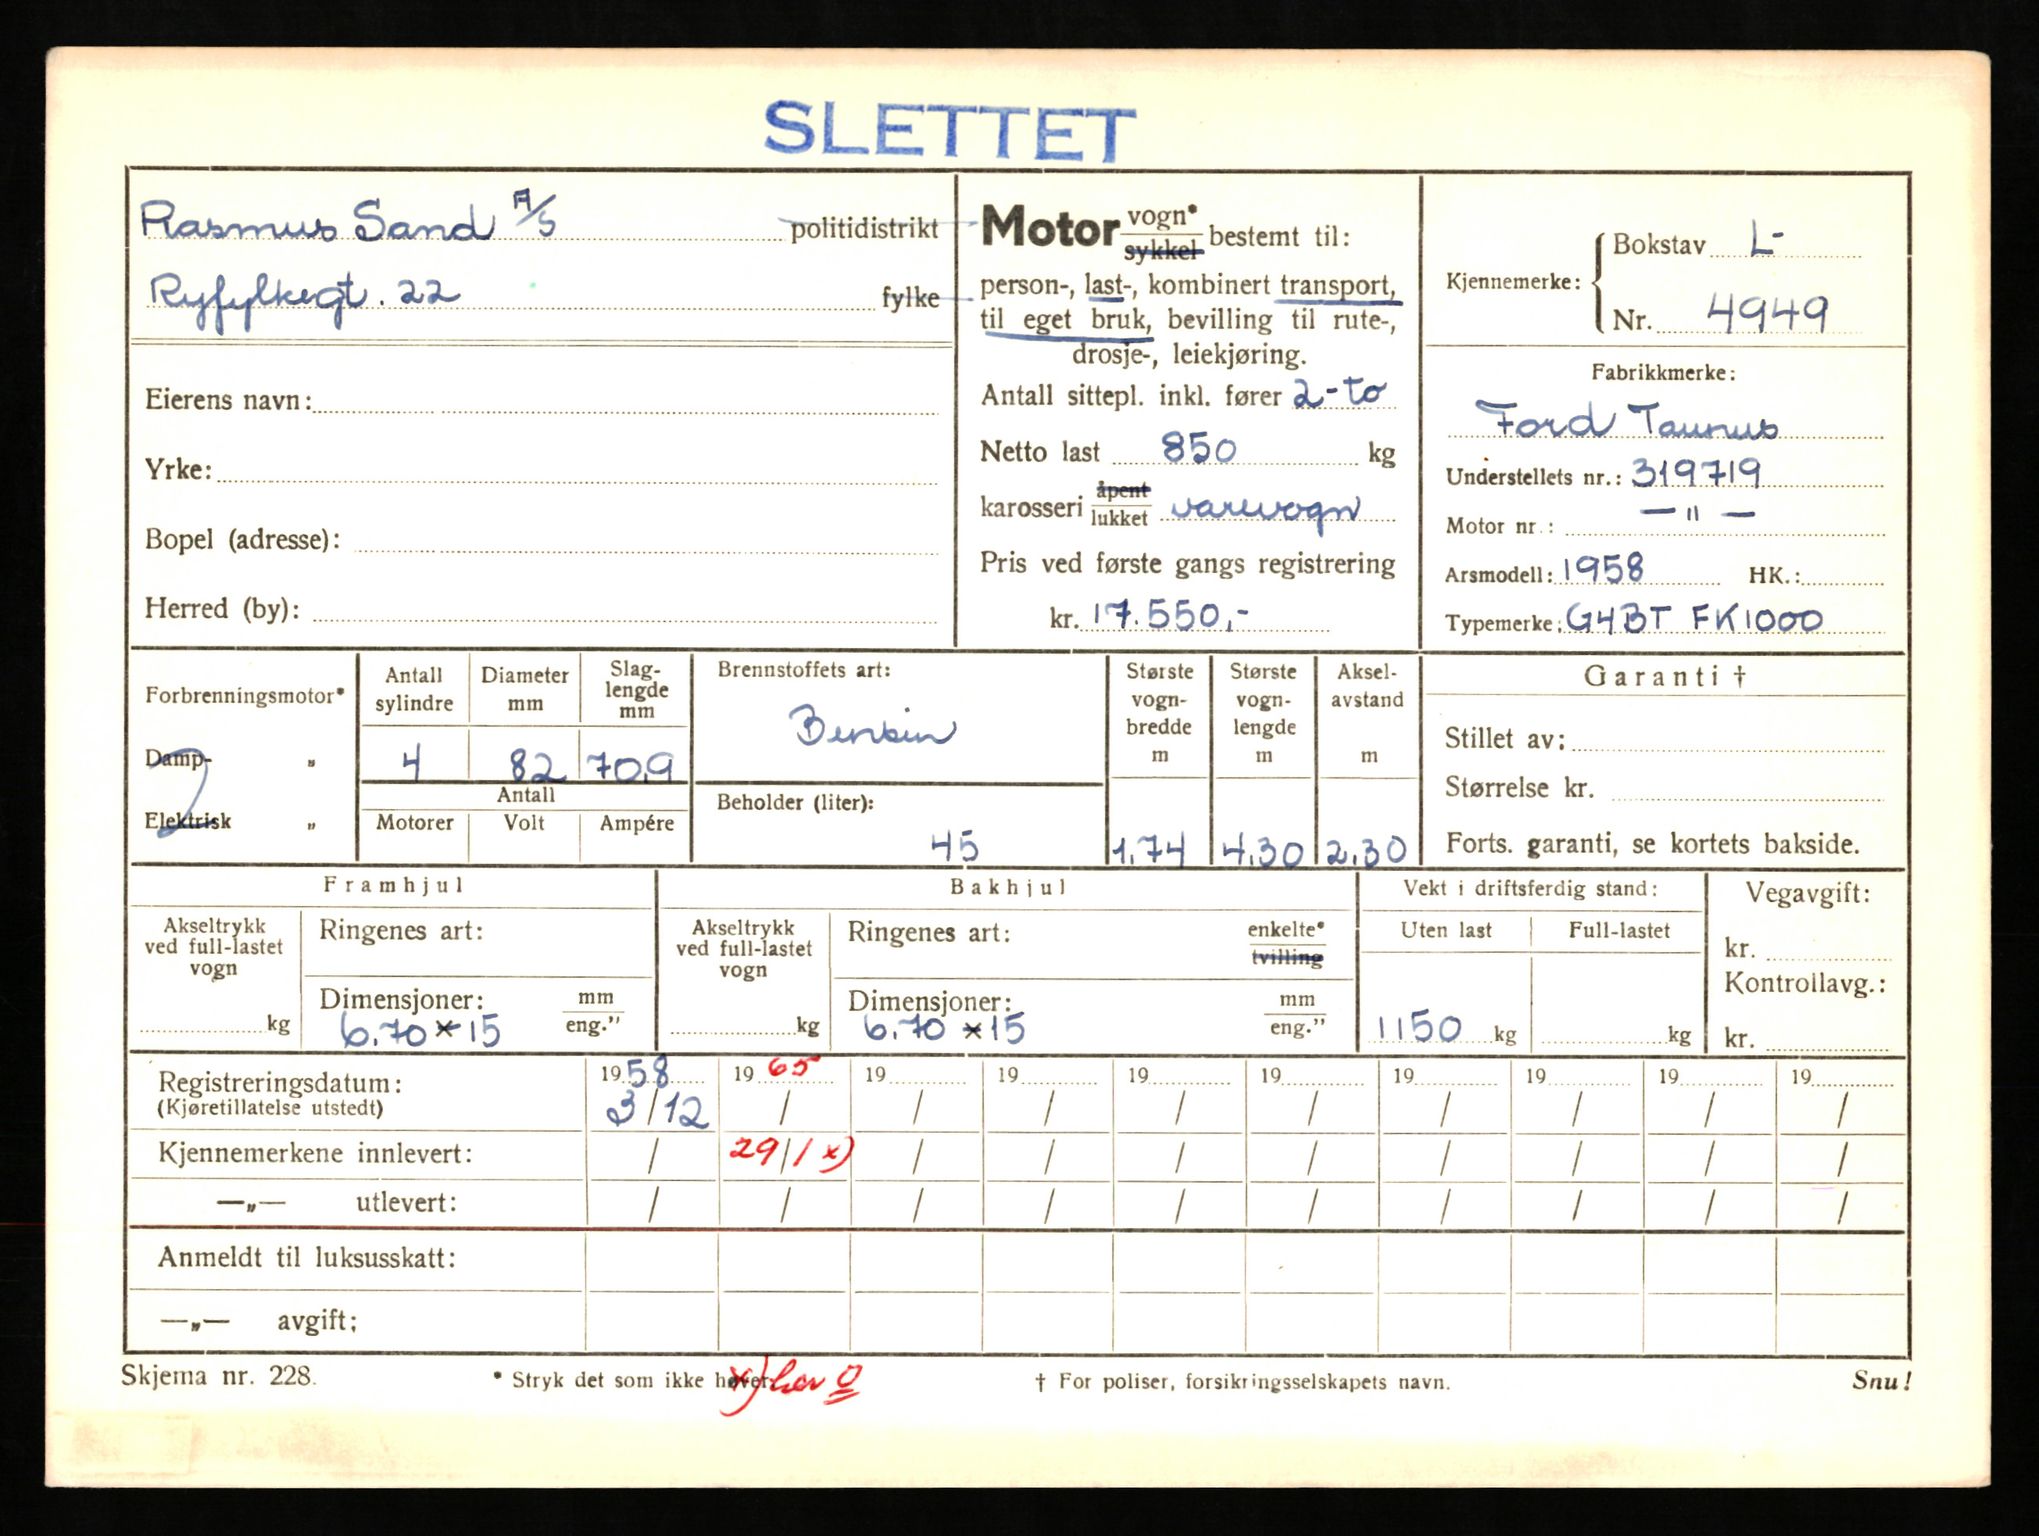 SLETTET
Rasmus Sand A/S politidistrikt
Ryfylkegt. 22 fylke
Eierens navn:
Yrke:
Bopel (adresse):
Herred (by):
Motor vogn* sykkel bestemt til:
person-, last-, kombinert transport,
til eget bruk, bevilling til rute-,
drosje-, leiekjøring.
Antall sittepl. inkl. fører 2-to
Netto last 850 kg
karosseri åpent lukket varevogn
Pris ved første gangs registrering
kr. 17.550,-
Kjennemerke: Bokstav L-
Nr. 4949
Fabrikkmerke:
Ford Taunus
Understellets nr.: 319719
Motor nr.: — " —
Arsmodell: 1958 HK.:
Typemerke: G4BT FK1000
Forbrenningsmotor*
Damp- "
Elektrisk "
Antall sylindre
Diameter mm
Slag-lengde mm
4 82 70,9
Antall
Motorer Volt Ampére
Brennstoffets art:
Bensin
Beholder (liter):
45
Største vogn-bredde m
1,74
Største vogn-lengde m
4,30
Aksel-avstand m
2,30
Garanti †
Stillet av:
Størrelse kr.
Forts. garanti, se kortets bakside.
Framhjul
Akseltrykk ved full-lastet vogn
kg
Ringenes art:
Dimensjoner: mm eng."
6.70 x 15
Bakhjul
Akseltrykk ved full-lastet vogn
kg
Ringenes art: enkelte* tvilling
Dimensjoner: mm eng."
6.70 x 15
Vekt i driftsferdig stand:
Uten last Full-lastet
1150 kg kg
Vegavgift:
kr.
Kontrollavg.:
kr.
Registreringsdatum: 1958 1965 19 19 19 19 19 19 19 19
(Kjøretillatelse utstedt) 3/12 / / / / / / / / /
Kjennemerkene innlevert: / 29/1 x) / / / / / / / /
—„— utlevert: / / / / / / / / / /
Anmeldt til luksusskatt:
—„— avgift;
Skjema nr. 228. * Stryk det som ikke høver. x) her 0 † For poliser, forsikringsselskapets navn. Snu!